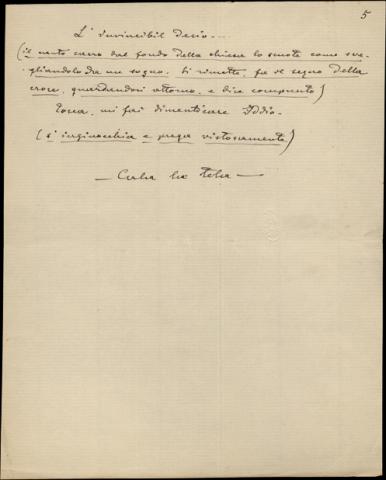 5
L' invincibil Desio...
(il canto sacro dal fondo della chiesa lo scuote come sve-
gliandolo da un sogno. Si rimette, fa il segno della
croce, guardandosi attorno, e dice compunto)
Tosca, mi fai dimenticare Iddio.
(s'inginocchia e prega vistosamente)
— Cala la tela —